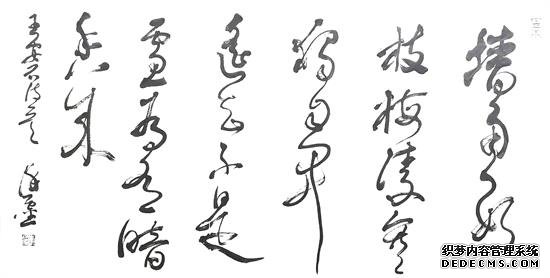 墙角数
枝梅凌寒
独自开
遥知不是
雪为有暗
香来
王安石诗
织梦内容管理系统
DEDECMS.COM